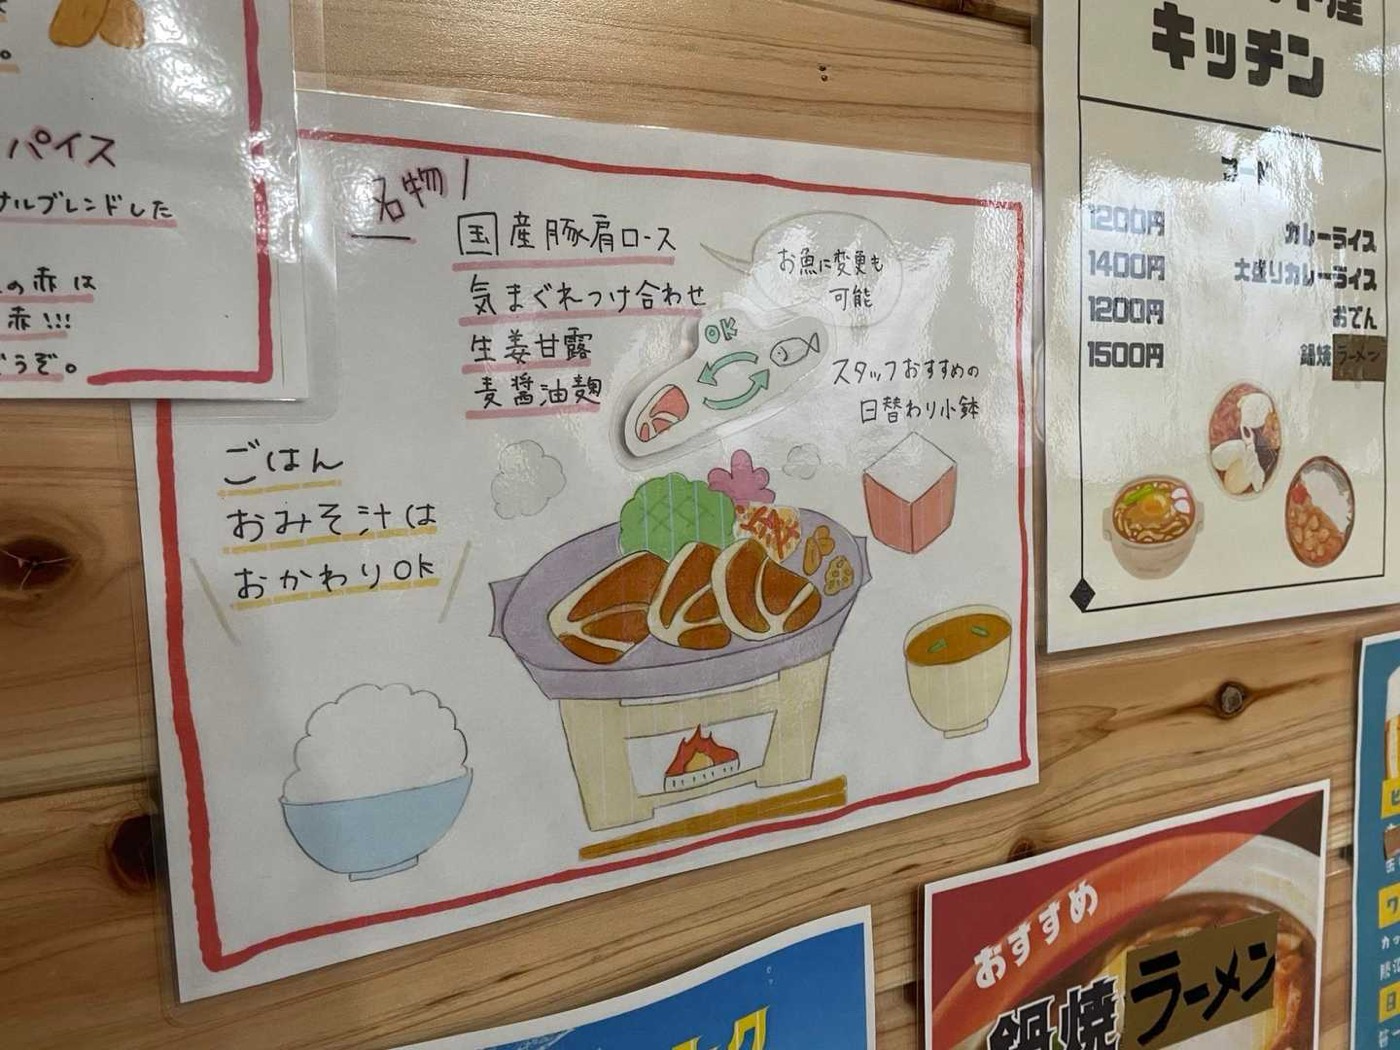 パイス
ナルブレンドした
の赤は
赤!!!
どうぞ。
名物
国産豚肩ロース
気まぐれつけ合わせ
生姜甘露
麦醤油麹
お魚に変更も
可能
OK
スタッフおすすめの
日替わり小鉢
ごはん
おみそ汁は
おかわりOK
キッチン
フード
1200円 カレーライス
1400円 大盛りカレーライス
1200円 おでん
1500円 鍋焼ラーメン
おすすめ
鍋焼ラーメン